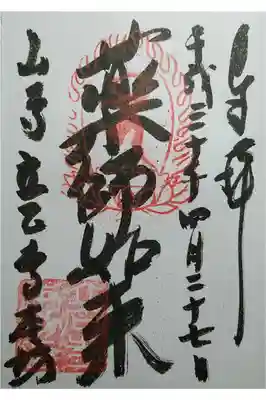 奉拝
平成三十年四月二十七日
薬師如来
山寺 立石寺本坊